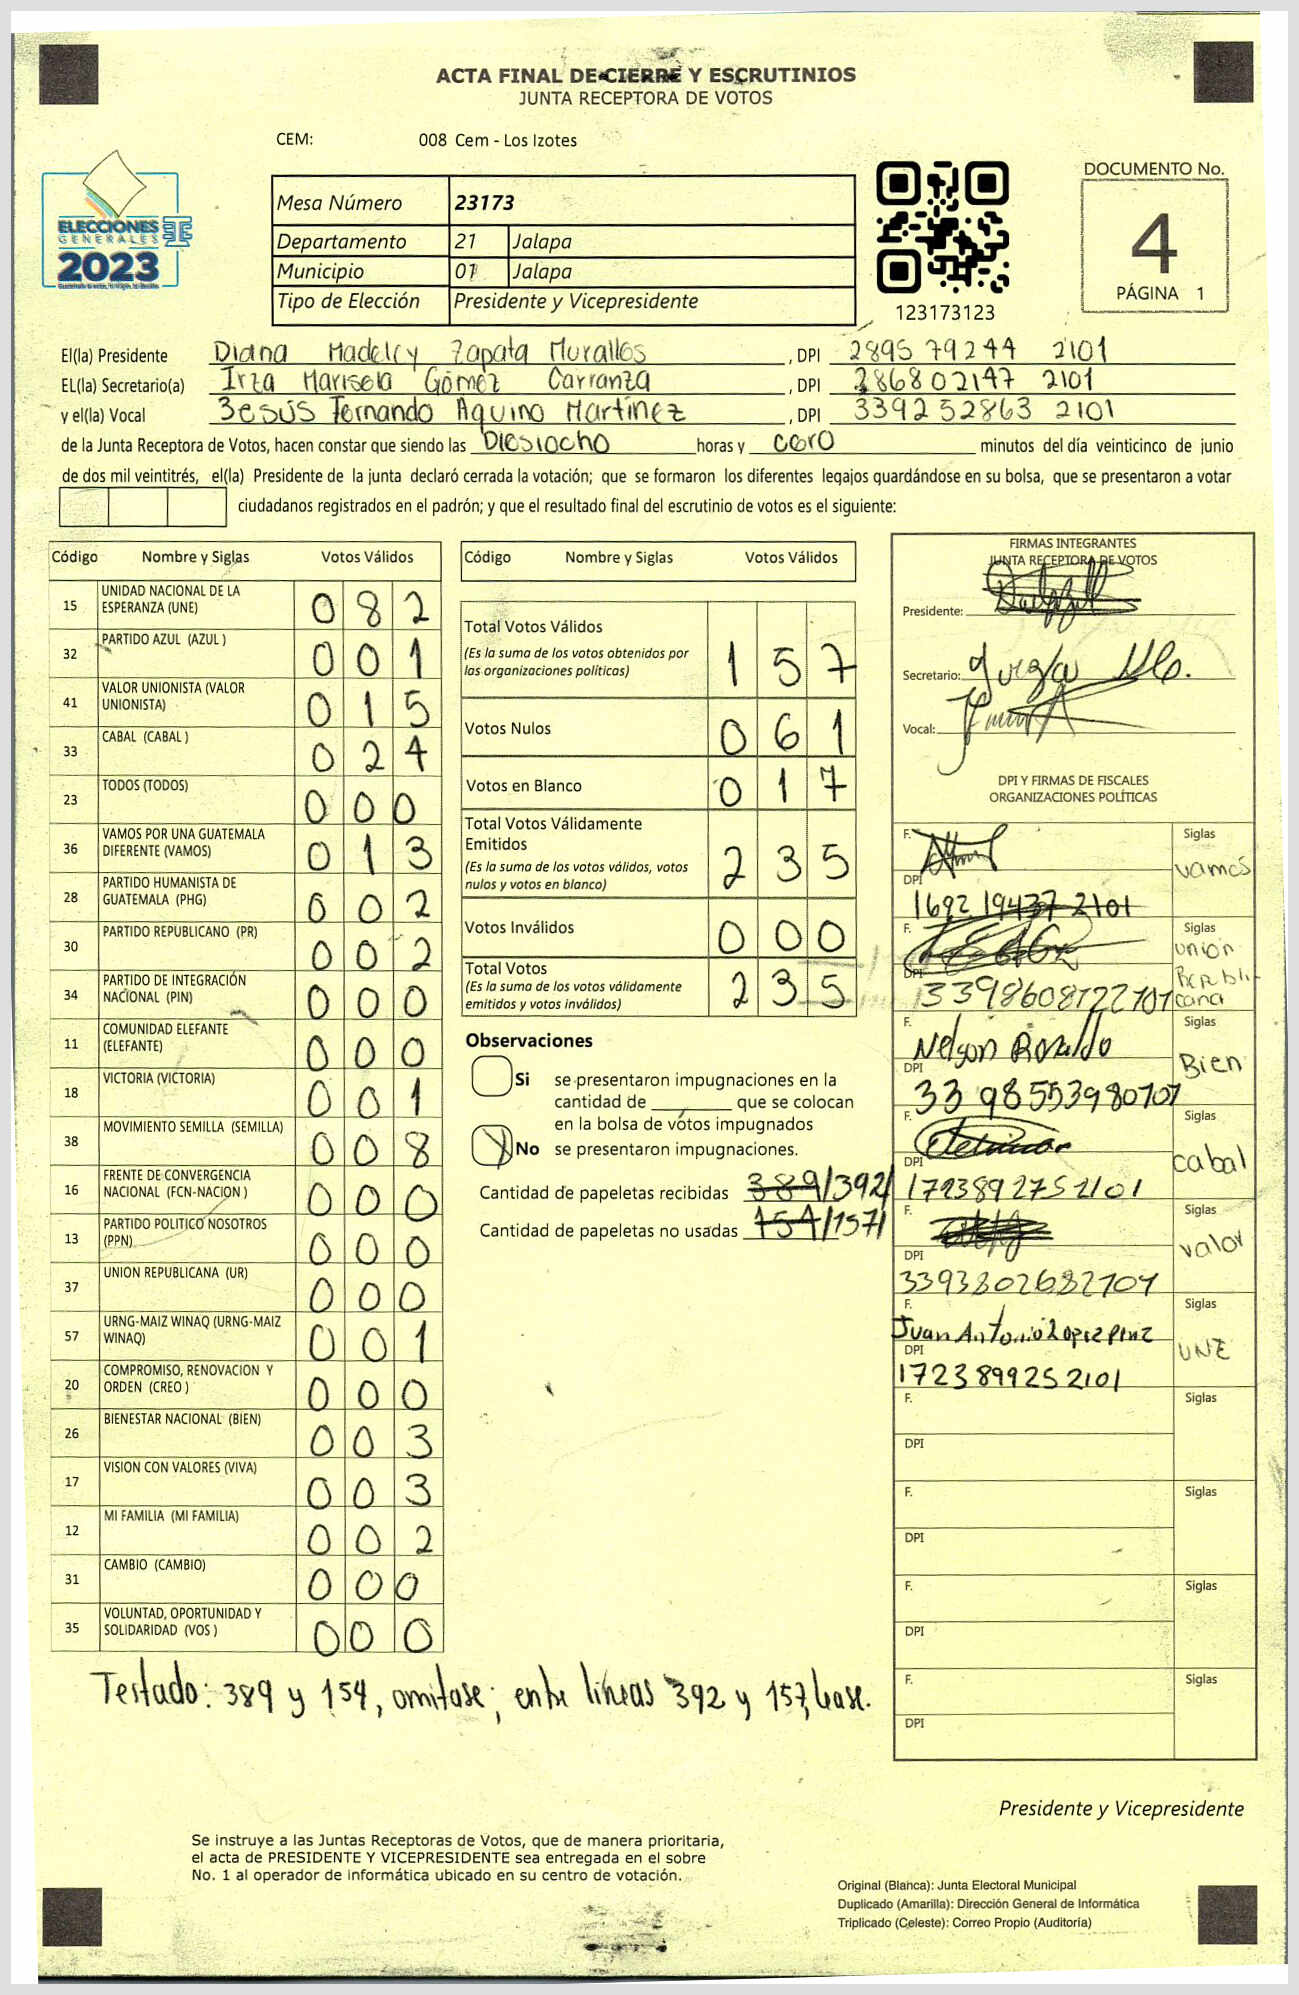 ACTA FINAL DE CIERRE Y ESCRUTINIOS
JUNTA RECEPTORA DE VOTOS
CEM: 008 Cem - Los Izotes
ELECCIONES
GENERALES
2023
Mesa Número 23173
Departamento 21 Jalapa
Municipio 01 Jalapa
Tipo de Elección Presidente y Vicepresidente
123173123
DOCUMENTO No.
4
PÁGINA 1
El(la) Presidente Diana Madelcy Zapata Murallos, DPI 2895 79244 2101
EL(la) Secretario(a) Irza Marisela Gómez Carranza, DPI 286802147 2101
y el(la) Vocal Jesús Fernando Aquino Martínez, DPI 339252863 2101
de la Junta Receptora de Votos, hacen constar que siendo las Diesiocho horas y cero minutos del día veinticinco de junio
de dos mil veintitrés, el(la) Presidente de la junta declaró cerrada la votación; que se formaron los diferentes legajos guardándose en su bolsa, que se presentaron a votar
ciudadanos registrados en el padrón; y que el resultado final del escrutinio de votos es el siguiente:
Código Nombre y Siglas Votos Válidos
15 UNIDAD NACIONAL DE LA ESPERANZA (UNE) 0 8 2
32 PARTIDO AZUL (AZUL ) 0 0 1
41 VALOR UNIONISTA (VALOR UNIONISTA) 0 1 5
33 CABAL (CABAL ) 0 2 4
23 TODOS (TODOS) 0 0 0
36 VAMOS POR UNA GUATEMALA DIFERENTE (VAMOS) 0 1 3
28 PARTIDO HUMANISTA DE GUATEMALA (PHG) 0 0 2
30 PARTIDO REPUBLICANO (PR) 0 0 2
34 PARTIDO DE INTEGRACIÓN NACIONAL (PIN) 0 0 0
11 COMUNIDAD ELEFANTE (ELEFANTE) 0 0 0
18 VICTORIA (VICTORIA) 0 0 1
38 MOVIMIENTO SEMILLA (SEMILLA) 0 0 8
16 FRENTE DE CONVERGENCIA NACIONAL (FCN-NACION ) 0 0 0
13 PARTIDO POLITICO NOSOTROS (PPN) 0 0 0
37 UNION REPUBLICANA (UR) 0 0 0
57 URNG-MAIZ WINAQ (URNG-MAIZ WINAQ) 0 0 1
20 COMPROMISO, RENOVACION Y ORDEN (CREO ) 0 0 0
26 BIENESTAR NACIONAL (BIEN) 0 0 3
17 VISION CON VALORES (VIVA) 0 0 3
12 MI FAMILIA (MI FAMILIA) 0 0 2
31 CAMBIO (CAMBIO) 0 0 0
35 VOLUNTAD, OPORTUNIDAD Y SOLIDARIDAD (VOS ) 0 0 0
Código Nombre y Siglas Votos Válidos
Total Votos Válidos 1 5 7
(Es la suma de los votos obtenidos por
las organizaciones políticas)
Votos Nulos 0 6 1
Votos en Blanco 0 1 7
Total Votos Válidamente
Emitidos 2 3 5
(Es la suma de los votos válidos, votos
nulos y votos en blanco)
Votos Inválidos 0 0 0
Total Votos 2 3 5
(Es la suma de los votos válidamente
emitidos y votos inválidos)
Observaciones
Si se presentaron impugnaciones en la
cantidad de ________ que se colocan
en la bolsa de votos impugnados
No se presentaron impugnaciones.
Cantidad de papeletas recibidas 389/392/
Cantidad de papeletas no usadas 154/157/
FIRMAS INTEGRANTES
JUNTA RECEPTORA DE VOTOS
Presidente:
Secretario:
Vocal:
DPI Y FIRMAS DE FISCALES
ORGANIZACIONES POLÍTICAS
F. Siglas
vamos
DPI
1692 19437 2101
F. Siglas
union
Republi-
cana
DPI
3398608722107
F. Siglas
Nelson Ronaldo
Bien
DPI
33 98553980707
F. Siglas
cabal
DPI
1723892752101
F. Siglas
valor
DPI
3393802682101
F. Siglas
Juan Antonio Lopez Perez
UNE
DPI
1723899252101
F. Siglas
DPI
F. Siglas
DPI
F. Siglas
DPI
F. Siglas
DPI
Testado: 389 y 154, omitase; entre líneas 392 y 157, lease.
Presidente y Vicepresidente
Se instruye a las Juntas Receptoras de Votos, que de manera prioritaria,
el acta de PRESIDENTE Y VICEPRESIDENTE sea entregada en el sobre
No. 1 al operador de informática ubicado en su centro de votación.
Original (Blanca): Junta Electoral Municipal
Duplicado (Amarilla): Dirección General de Informática
Triplicado (Celeste): Correo Propio (Auditoría)